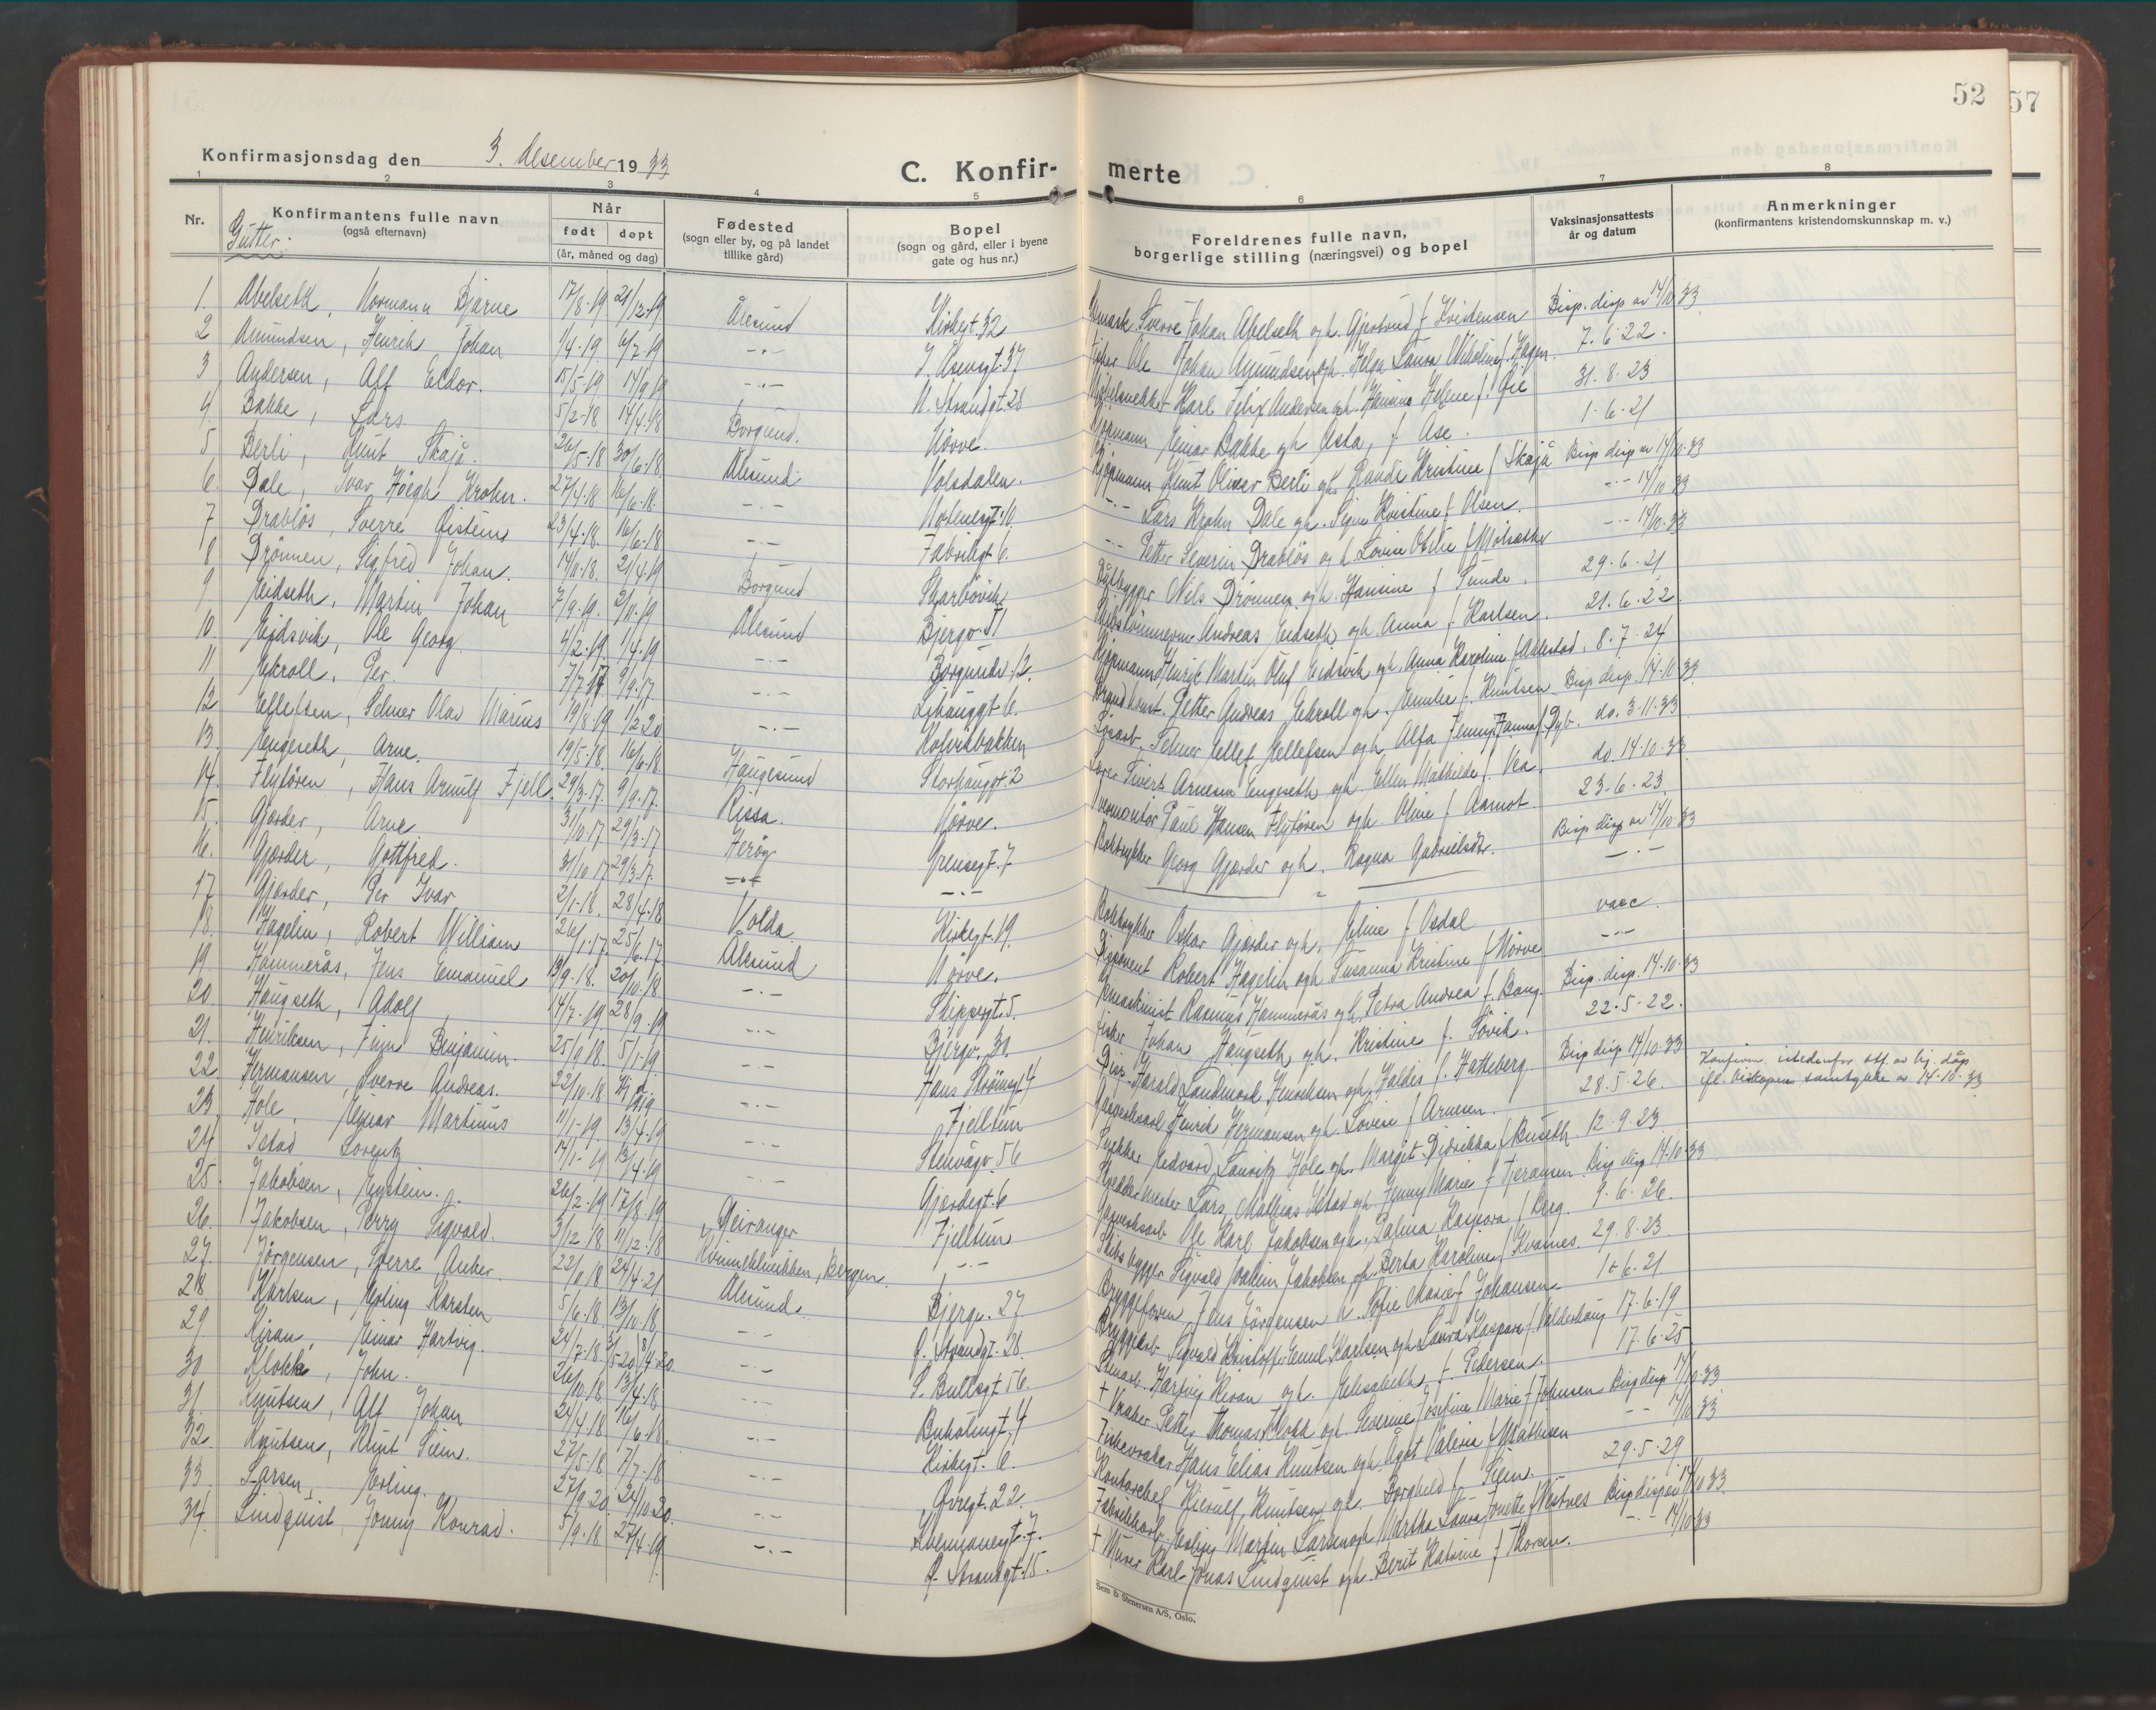 52
57
Konfirmasjonsdag den 3. desember 1933
C. Konfir- merte
1 2 3 4 5 6 7 8
Nr.
Konfirmantens fulle navn
(også efternavn)
Gutter.
Når
født døpt
(år, måned og dag)
Fødested
(sogn eller by, og på landet
tillike gård)
Bopel
(sogn og gård, eller i byene
gate og hus nr.)
Foreldrenes fulle navn,
borgerlige stilling (næringsvei) og bopel
Vaksinasjonsattests
år og datum
Anmerkninger
(konfirmantens kristendomskunnskap m. v.)
1. Abelseth, Normann Bjarne 17/8-19 21/12-19 Ålesund Kirkegt. 32 Sverre Johan Abelseth og h. Gjertrud f. Kristensen Bisp. disp av 14/10 33
2 Amundsen, Henrik Johan 1/4-19 6/7-19 -"- 37 Fisker Ole Johan Amundsen og h. Helga Laura f. Hagen 7-6-22
3 Andersen, Alf Eldor. 15/5-19 14/9-19 -"- N. Strandgt. 28 Karl Felix Andersen og h. Helene f. Gie 31-8-23
4. Bakke, Lars 5/2-18 14/4-18 Borgund. Nörve. Kjöpmann Einar Bakke og h. Asta, f. Ase. 1-6-21
5 Berli, Knut Skajå. 26/5-18 30/6-18 Ålesund. Volsdalen. Kjöpmann Knut Oliver Berli og h. Kristine f. Skajå Bisp disp av 14/10-33
6. Dale, Ivar Höegh Krohn. 27/4-18 16/6-18. -"- -"- Lars Krohn Dale og h. Signe Kristine f. Olsen. -"- 14/10 33
7 Drablös, Sverre Öistein 23/4-18. 16/6-18 -"- Fabrikgt 6. -"- Petter Severin Drablös og h. Lovise f. -"- 14/10-33
8 Drönnen, Sigfred Johan. 14/11-18. 21/4-19 Borgund Skarbövik Båtbygger Nils Drönnen og h. Hansine f. Tunde. 29-6-21
9. Eidseth, Martin Johan 7/9-19. 2/11-19 Ålesund Bjergv. 51 Andreas Eidseth og h. Anna f. Karlsen. 21.6.22
10. Eidsvik, Ole Georg. 4/2-19. 1/4-19 -"- Borgundv. 12 Kjöpmann Henrik Martin Oluf Eidsvik og h. Anna Karoline f. 8-7-24
11 Ekroll, Per. 7/7-17 9/9-17. -"- Lihauggt 6. Petter Andreas Ekroll og h. Emilie f. Knutsen Bisp disp. 14-10-33
12 Ellefsen, Selmer Olav Marius 19/8-19 1/2 20 -"- Selmer Ellef Ellefsen og h. Alfa Jenny Hanna f. Dyb. do. 3-11-33
13. Engeseth, Arne. 19/5-18. 16/6-18. Haugesund Storhauggt 2 Sivert Arnesen Engeseth og h. Ellen Mathilde f. Vea. do. 14-10-33
14. Flytören, Hans Arnulf Fjell. 29/3-17. 9/9-17. Rissa. Nörve. Paul Hansen Flytören og h. Oline f. Aamot. 23-6-23
15. Gjærder, Arne 31/10-17 29/3-17 Heröy Grensegt. 7 Boktrykker Georg Gjærder og h. Ragna Gabrielsdtr. Bisp disp av 14/10-33
16. Gjærder, Gottfred. 31/10 17 29/3-17. -"- -"- " -"-
17 Gjærder, Per Ivar 2/1-18. 28/4-18 Volda. Kirkegt. 19. Boktrykker Oskar Gjærder og h. Eline f. Osdal vacc.
18. Hagelin, Robert William 26/1-17. 25/6-17. Ålesund Nörve. Disponent Robert Hagelin og h. Susanna Kristine f. Nörve -"-
19 Hammerås, Jens Emanuel 13/9-18. 20/10-18 -"- Skippergt. 5. Maskinist Rasmus Hammerås og h. Petra Andrea f. Bang. Bisp. disp. 14-10-33
20. Haugseth, Adolf 14/7-19. 28/9-19 -"- Bjergv. 30. Fisker Johan Haugseth og h. Kristine f. Sövik. 22-5-22.
21. Henriksen, Finn Benjamin. 25/9 18. 5/1-19 -"- Hans Strömsgt. 4 Harald Landmark Henriksen og h. Haldis f. Hatteberg. Bisp disp 14/10-33 Konfirm. istedenfor
ifl. biskopens samtykke av 14-10-33
22. Hermansen, Sverre Andreas. 22/10-18. -"- Fjelltun Henrik Hermansen og h. Lovise f. Arnesen. 28.5-26.
23. Hole, Einar Martinus 11/1-19 13/4-19 -"- Steinvågv. 56 Snekker Edvard Lauritz Hole og h. Margit Didrikka f. Buseth. 12-9-23
24 Istad Lorentz 14/1-19 13/4-19 -"- Gjærdegt. 6 Lars Mathias Istad og h. Jenny Marie f. Bisp disp 14-10-33
25. Jakobsen, Eystein. 26/2-19 17/8-19 Geiranger Fjelltun Ole Karl Jakobsen og h. Palma Kaspara f. Berg. 9-6-26.
26. Jakobsen, Perry Sigvald. 3/12-18 11/12-18 Kvinneklinikken, Bergen. -"- Skibsbygger Sigvald Joakim Jakobsen og h. Berta Karoline f. Kvamnes. 29.8-23
27. Jörgensen, Sverre Anker. 22/11-18 24/4-21 Ålesund. Bjergv. 27. Jens Jörgensen og h. Sofie Marie f. Johansen 1-6-21
28. Karlsen, Erling Karsten 5/6-18. 13/10-18 -"- Ö. Strandgt. 28. Bryggearb. Sigvald Kristoffer Emil Karlsen og h. Laura Kaspara f. Valderhaug 17-6-19
29 Kiran, Einar Hartvig. 24/7-18. -"- S. Bullsgt. 56. Hartvig Kiran og h. Elisabeth f. Pedersen. 17-6-25
30 Klokk, John. 26/10-18. 13/4-18 -"- Buholmgt. 4 † Vraker Petter Thomas Klokk og h. Severine Josefine Marie f. Johnsen Bisp disp 14/10-33
31. Knutsen, Alf Johan 24/4-18. 16/6-18. -"- Kirkegt. 6. Fiskevraker Hans Elias Knutsen og h. Ågot Valeria f. Mathisen -"- 14/10-33
32. Knutsen, Knut Siem. 27/5-18 7/7-18 -"- 22. Kontorchef Hierulf Knutsen og h. Borghild f. Siem. 29-5-29
33. Larsen, Erling. 27/9-20. 24/10-20. -"- 7. Fabrikkarb. Erling Martin Larsen og h. Martha Laura Jonette f. Vestnes Bisp disp av 14/10-33
34. Lindquist, Jonny Konrad. 5/9-18. 27/4-19 -"- Ö. Strandgt. 15. † Murer Karl Jonas Lindquist og h. Berit Katrine f. Thorsen. -"- 14/10-33
Sem & Stenersen A/S, Oslo.